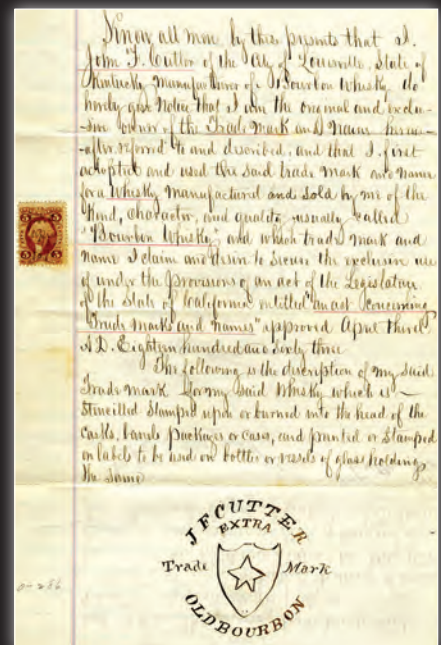 Know all men by these presents that I.
John F. Cutter of the City of Louisville, State of
Kentucky Manufacturer of Bourbon Whisky do
hereby give Notice that I am the original and exclu-
-sive owner of the Trade Mark and Name herein-
-after referred to and described, and that I first
adopted and used the said trade mark and name
for a Whisky manufactured and sold by me of the
Kind, character, and quality usually called
"Bourbon Whisky" and which trade mark and
name I claim and desire to secure the exclusive use
of under the provisions of an act of the Legislature
of the State of California entitled "an act concerning
Trade Marks and names" approved April third
A D. Eighteen hundred and sixty three
The following is the description of my said
Trade mark for my said Whisky which is —
Stencilled Stamped upon or burned into the head of the
casks, barrels packages or cases, and printed or Stamped
on labels to be used on bottles or vessels of glass holding
the same
J F CUTTER
EXTRA
Trade Mark
OLD BOURBON